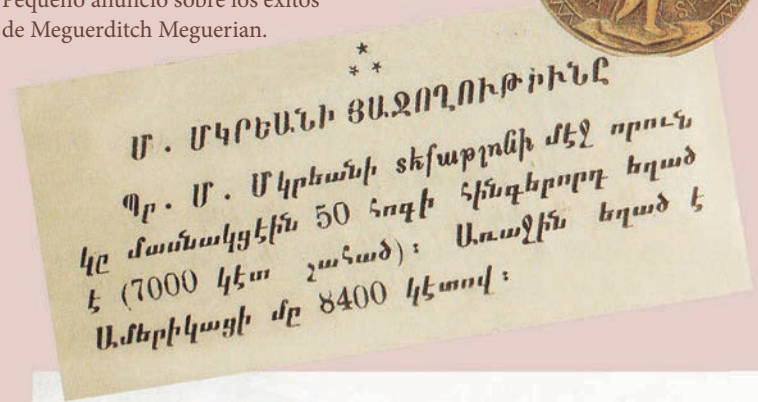 Pequeño anuncio sobre los éxitos
de Meguerditch Meguerian.
Մ . ՄԿՐԵԱՆԻ ՅԱՋՈՂՈՒԹԻՒՆԸ
Պր . Մ . Մկրեանի տեֆաթլոնի մէջ որուն
կը մասնակցէին 50 հոգի հինգերորդ եղած
է (7000 կէտ շահած) ։ Առաջին եղած է
Ամերիկացի մը 8400 կէտով ։